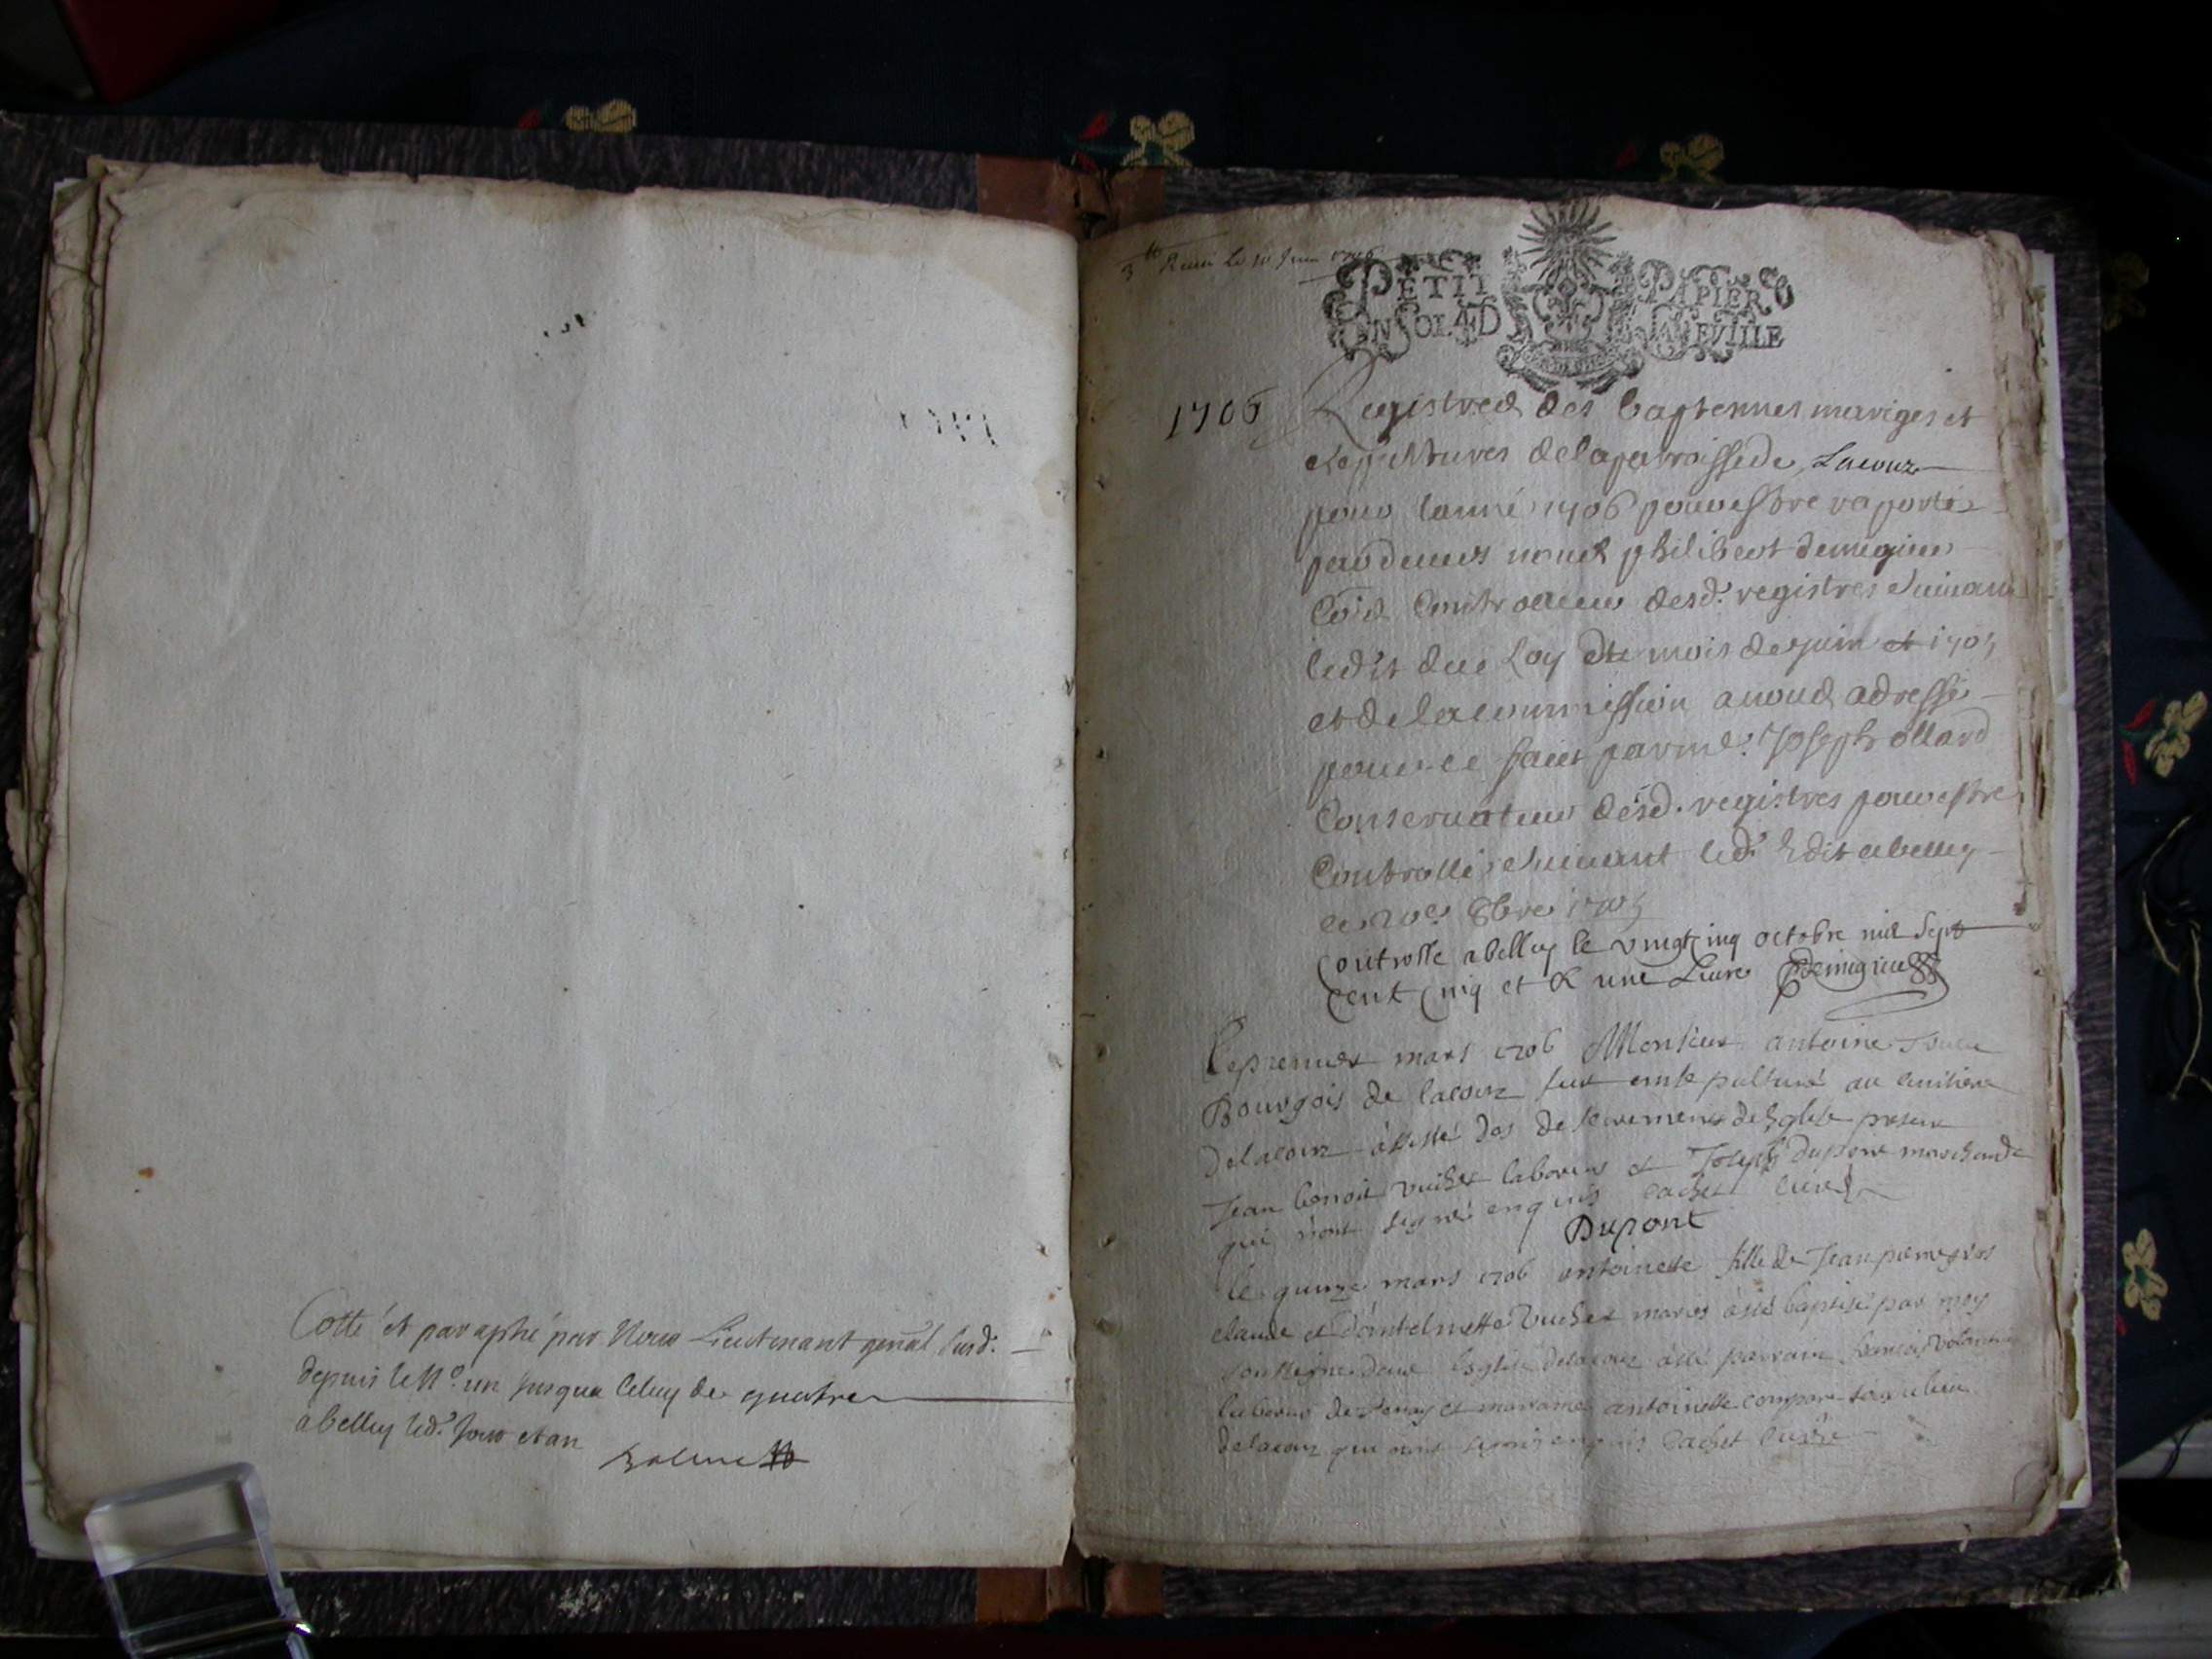 Cotté et paraphé par Nous Lieutenant genal susd.
depuis le No. un jusqua celuy de quatre
a belley led. jour et an
PETIT PAPIER
EN SOL 4 D LA FVILLE
1706 Registred des baptemes mariges et
sepultures de la parroissede Lacoux
pour lanné 1706 pour estre raporté
pardevers nous philibert demigieu
Con.er Controlleur desd. registres suivant
ledit du Roy du mois de juin 1705
et de la commission a nous adressé
pour ce faict par me. Joseph ollard
Conservateur desd. registres pour estre
Controllé suivant led. Edit a belley
ce 20e. 8bre 1705
Controlle a belley le vingt cinq octobre mil Sept
Cent Cinq et R une Livre Demigieu
Le premier mars 1706 Monsieur antoine
Bourgois de lacoux fut ensepulturé au cimitiere
de lacoux assisté des sacrements de Eglise present
Jean benoit vuichet laboreur et Joseph dupont marchand
qui nont signé enquis Cachet curé
Dupont
le quinze mars 1706 antoinette fille de Jean pierre gros
claude et dantelmette Vuichet mariés a esté baptisé par moy
soussigné dans Eglise de lacoux a esté parrain francois
laboreur de tenay et marraine antoinette
de lacoux qui nont signé enquis Cachet curé